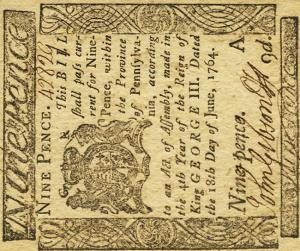 Nine pence
NINE PENCE.
This BILL
shall pass cur-
rent for Nine-
Pence, within
the Province
of Pennsylva-
nia, according
to an Act of Assembly, made in
the 4th Year of the Reign of
King GEORGE III. Dated
the 18th Day of June, 1764.
Nine-pence. A
9d.
Nine pence